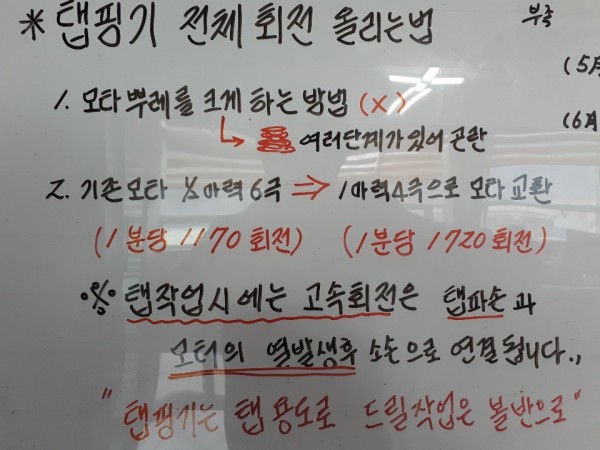 * 탭핑기 전체 회전 올리는법
부족
(5月
1. 모타 뿌레를 크게 하는 방법 (×)
(6月
↳ 여러단계가 있어 곤란
2. 기존모타 ½마력 6극 ⇒ 1마력 4극으로 모타교환
(1분당 1170 회전) (1분당 1720 회전)
※ 탭작업시에는 고속회전은 탭파손과
모터의 열발생후 소손으로 연결됩니다.,
"탭핑기는 탭 용도로 드릴작업은 볼반으로"